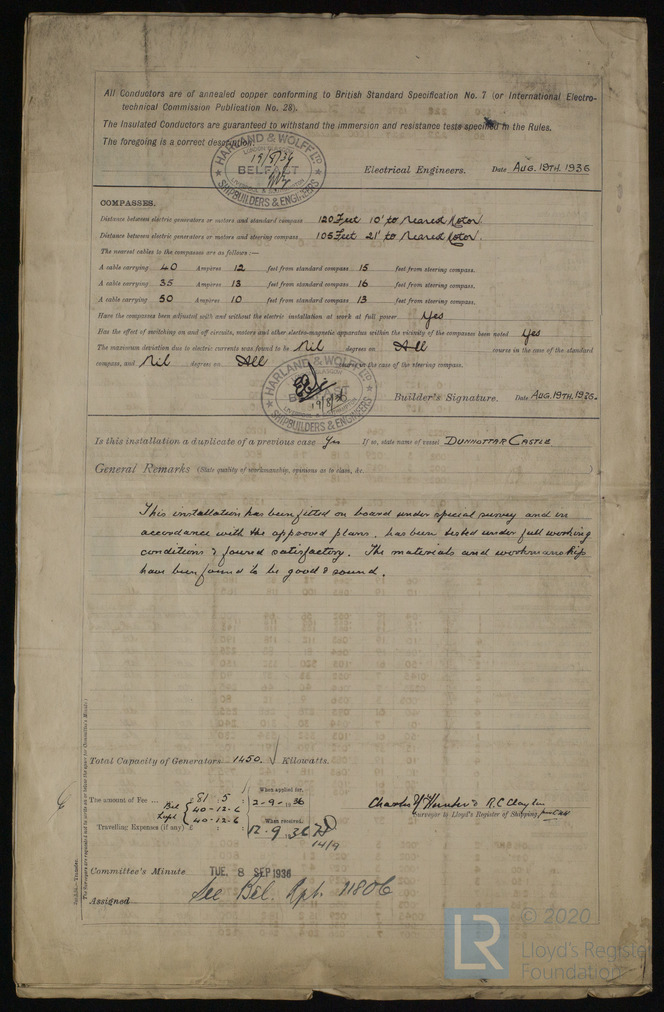 All Conductors are of annealed copper conforming to British Standard Specification No. 7 (or International Electro-
technical Commission Publication No. 28).
The Insulated Conductors are guaranteed to withstand the immersion and resistance tests specified in the Rules.
The foregoing is a correct description.
HARLAND & WOLFF LTD
BELFAST
SHIPBUILDERS & ENGINEERS
Electrical Engineers. Date AUG. 19TH. 1936
COMPASSES.
Distance between electric generators or motors and standard compass 120 Feet 10' to nearest motor
Distance between electric generators or motors and steering compass 105 Feet 21' to nearest motor.
The nearest cables to the compasses are as follows:—
A cable carrying 40 Ampères 12 feet from standard compass 15 feet from steering compass.
A cable carrying 35 Ampères 13 feet from standard compass 16 feet from steering compass.
A cable carrying 50 Ampères 10 feet from standard compass 13 feet from steering compass.
Have the compasses been adjusted with and without the electric installation at work at full power Yes
Has the effect of switching on and off circuits, motors and other electro-magnetic apparatus within the vicinity of the compasses been noted Yes
The maximum deviation due to electric currents was found to be Nil degrees on All course in the case of the standard
compass, and Nil degrees on All course in the case of the steering compass.
HARLAND & WOLFF LTD
BELFAST
19/8/36
SHIPBUILDERS & ENGINEERS
Builder's Signature. Date AUG. 19TH. 1936.
Is this installation a duplicate of a previous case Yes If so, state name of vessel DUNNOTTAR CASTLE
General Remarks (State quality of workmanship, opinions as to class, &c. )
This installation has been fitted on board under special survey and in
accordance with the approved plans, has been tested under full working
conditions & found satisfactory. The materials and workmanship
have been found to be good & sound.
Total Capacity of Generators 1450. Kilowatts.
The amount of Fee ... £ 81 : 5 :
Bel 40-12-6
40-12-6
When applied for,
2-9-1936
Travelling Expenses (if any) £ : :
When received,
12.9.36
14/9
R.C. Clayton
Surveyor to Lloyd's Register of Shipping.
Committee's Minute TUE. 8 SEP 1936
Assigned See Bel. Rpt. 11806
© 2020
LR
Lloyd's Register
Foundation